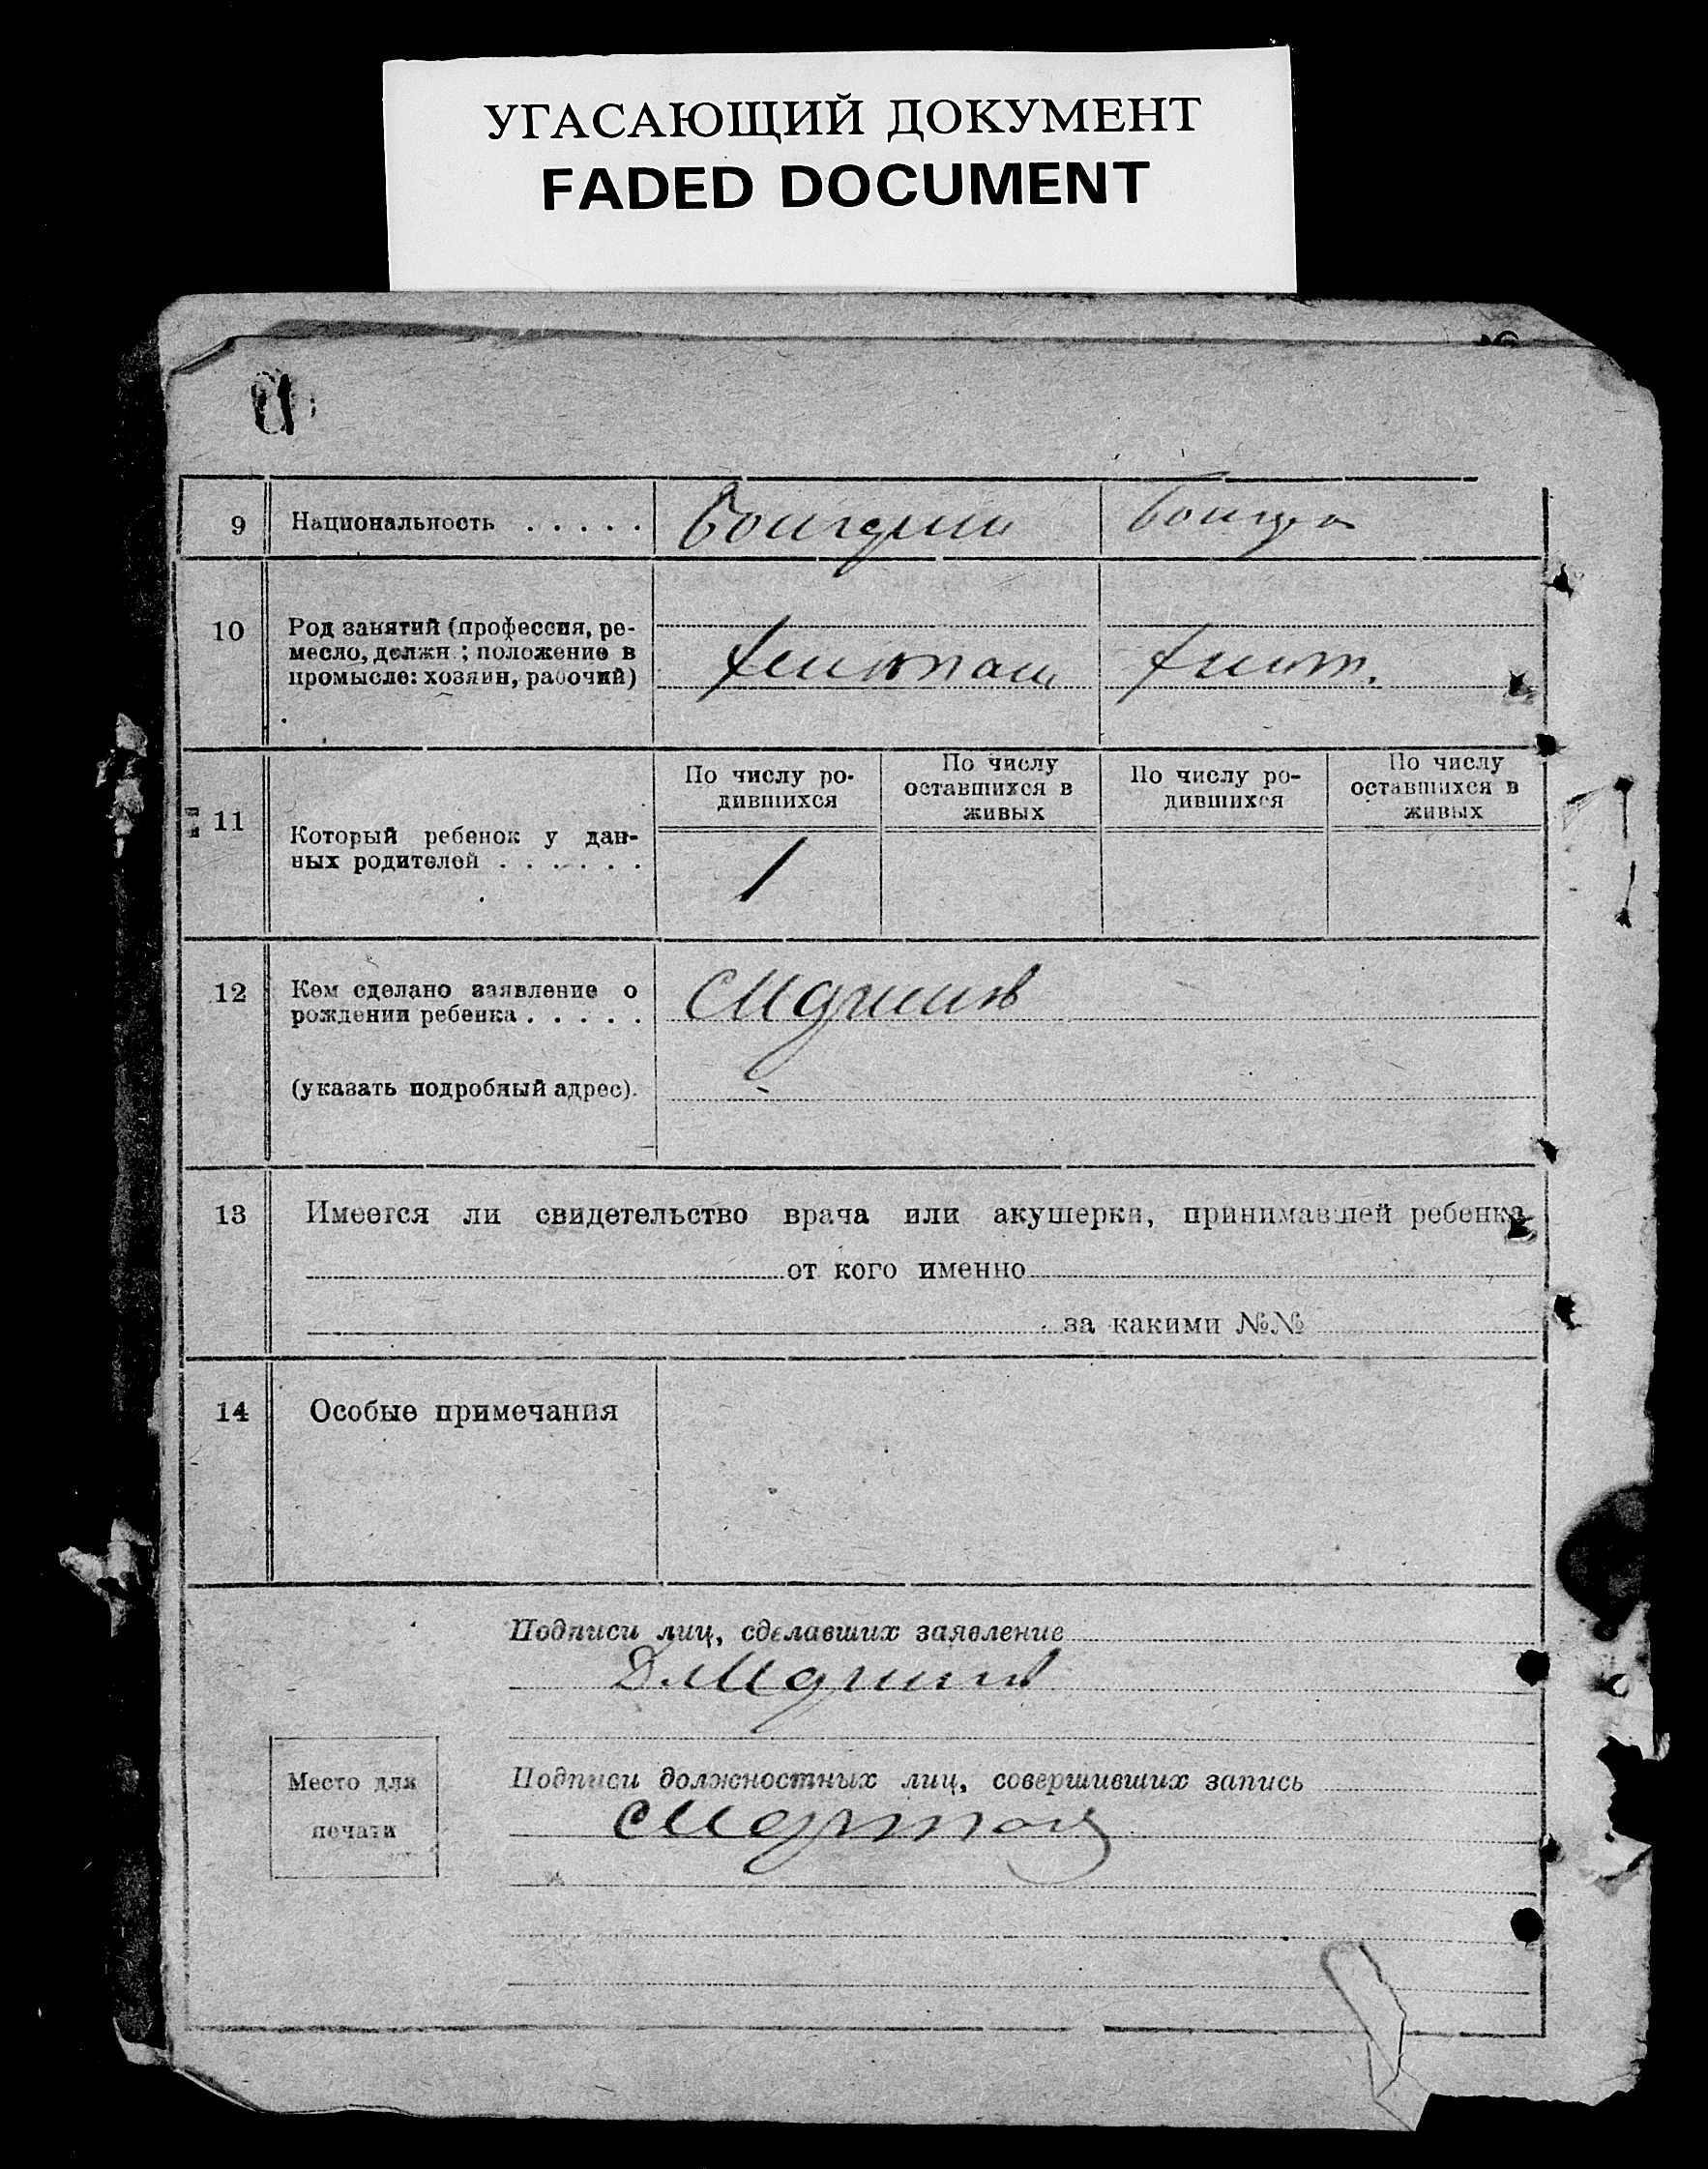 УГАСАЮЩИЙ ДОКУМЕНТ
FADED DOCUMENT
9 Национальность . . . . .
10 Род занятий (профессия, ре-
месло, должн ; положение в
промысле: хозяин, рабочий)
11 Который ребенок у дан-
ных родителей . . . . . .
По числу ро-
дившихся
По числу
оставшихся в
живых
По числу ро-
дившихся
По числу
оставшихся в
живых
1
12 Кем сделано заявление о
рождении ребенка . . . . .
(указать подробный адрес).
13 Имеется ли свидетельство врача или акушерки, принимавшей ребенка
от кого именно
за какими №№
14 Особые примечания
Подписи лиц, сделавших заявление
Место для
печати
Подписи должностных лиц, совершивших запись